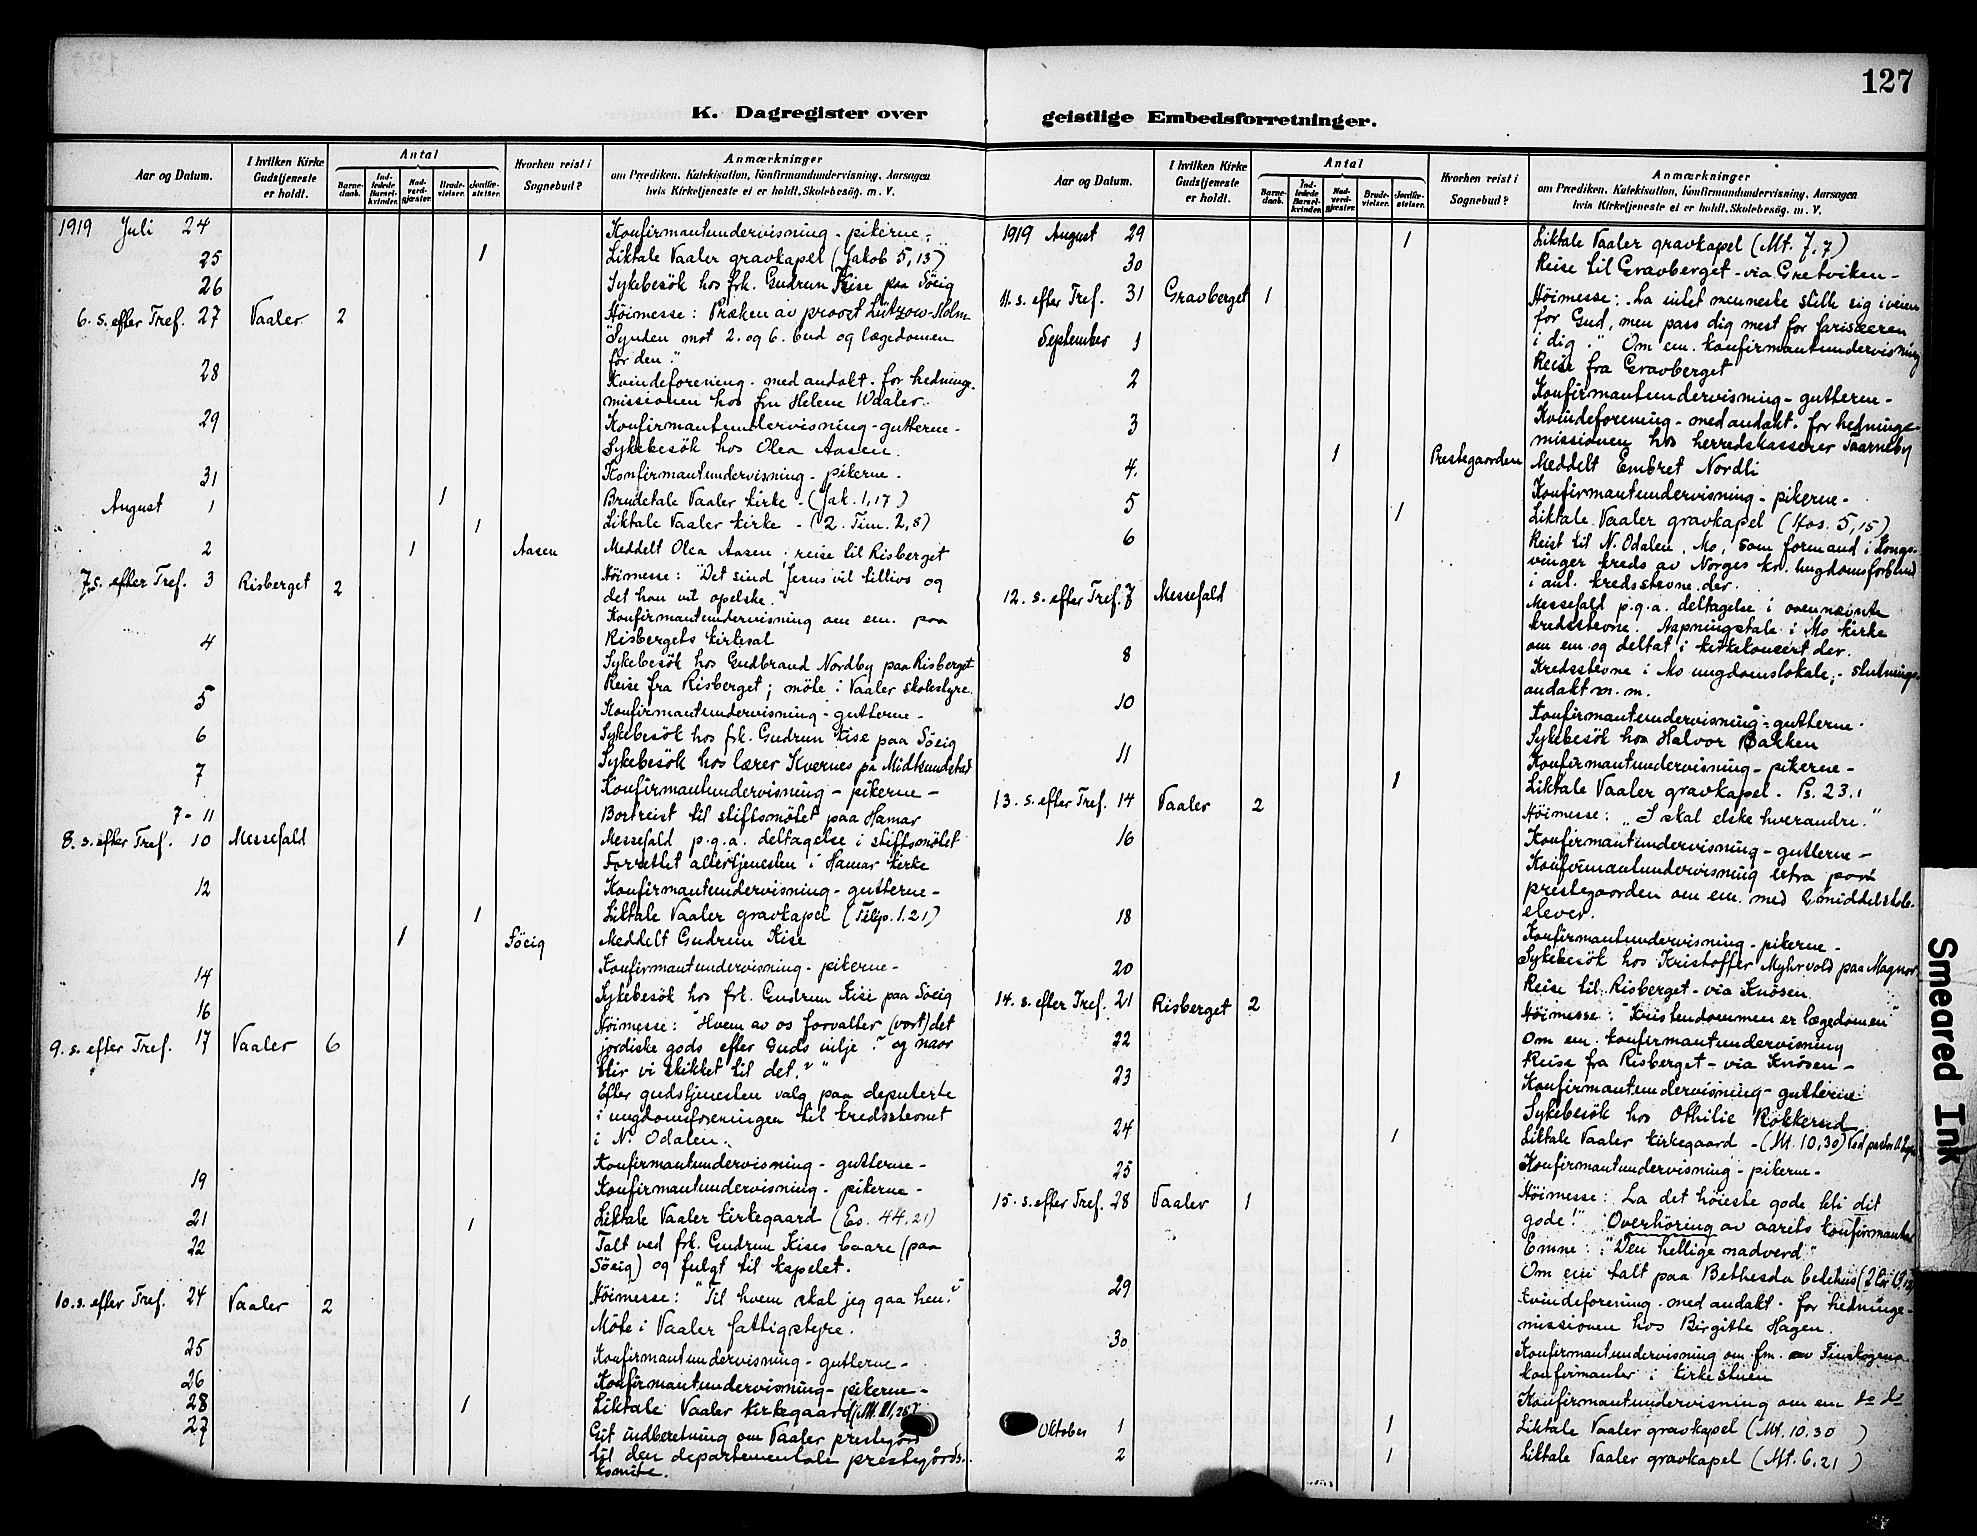 127
K. Dagregister over
geistlige Embedsforretninger.
Aar og Datum.
I hvilken Kirke
Gudstjeneste
er holdt.
Antal
Barne-
daab.
Ind-
ledede
Barsel-
kvinder.
Nad-
verd-
gjæster.
Brude-
vielser.
Jordfæ-
stelser.
Hvorhen reist i
Sognebud?
Anmærkninger
om Prædiken, Katekisation, Konfirmandundervisning, Aarsagen
hvis Kirketjeneste ei er holdt, Skolebesøg. m. V.
1919 Juli 24 Konfirmantundervisning - pikerne.
25 1 Liktale Vaaler gravkapel (Jakob 5,13)
26 Sykebesök hos frk. Gudrun Kise paa Söeig
6. s. efter Tref. 27 Vaaler 2 Höimesse: Præken av provst Lützow-Holm
"Synden mot 2. og 6. bud og lægedomen
for den."
28 Kvindeforening. med andakt. for hednings-
missionen hos fru Helene Waaler.
29 Konfirmantundervisning - gutterne -
Sykebesök hos Olea Aasen.
31 Konfirmantundervisning - pikerne -
August 1 1 Brudetale Vaaler kirke - (Jak. 1,17)
1 Liktale Vaaler kirke - (2. Tim. 2,8)
2 1 Aasen Meddelt Olea Aasen; reise til Risberget
7. s. efter Tref. 3 Risberget 2 Höimesse: "Det sind Jesus vil tillivs og
det han vil opelske."
Konfirmantundervisning om em. paa
Risbergets kirkesal
4 Sykebesök hos Gudbrand Nordby paa Risberget
Reise fra Risberget; möte i Vaaler skolestyre.
5 Konfirmantundervisning - gutterne -
6 Sykebesök hos frk. Gudrun Kise paa Söeig
Sykebesök hos lærer Kvernes på Midtsundstad
7 Konfirmantundervisning - pikerne -
7-11 Bortreist til stiftsmötet paa Hamar
8. s. efter Tref. 10 Messefald Messefald p.g.a. deltagelse i stiftsmötet
Forrettet altertjenesten i Hamar kirke
12 Konfirmantundervisning - gutterne -
1 Liktale Vaaler gravkapel (Filip. 1.21)
1 Söeig Meddelt Gudrun Kise
14 Konfirmantundervisning - pikerne -
16 Sykebesök hos frk. Gudrun Kise paa Söeig
9. s. efter Tref. 17 Vaaler 6 Höimesse: "Hvem av os forvalter (vort) det
jordiske gods efter Guds vilje? og naar
blir vi skikket til det?"
Efter gudstjenesten valg paa deputerte
i ungdomsforeningen til kredsstevnet
i N. Odalen.
Konfirmantundervisning - gutterne -
19 Konfirmantundervisning - pikerne -
21 1 Liktale Vaaler kirkegaard (Es. 44.21)
22 Talt ved frk. Gudrun Kises baare (paa
Söeig) og fulgt til kapelet.
10. s. efter Tref. 24 Vaaler 2 Höimesse: "Til hvem skal jeg gaa hen?"
Möte i Vaaler fattigstyre.
25 Konfirmantundervisning - gutterne -
26 Konfirmantundervisning - pikerne -
28 1 Liktale Vaaler kirkegaard (Mt. 11,28)
27 Git indberetning om Vaaler prestegård
til den departementale prestegårds-
komite.
Aar og Datum.
I hvilken Kirke
Gudstjeneste
er holdt.
Antal
Barne-
daab.
Ind-
ledede
Barsel-
kvinder.
Nad-
verd-
gjæster.
Brude-
vielser.
Jordfæ-
stelser.
Hvorhen reist i
Sognebud?
Anmærkninger
om Prædiken, Katekisation, Konfirmandundervisning, Aarsagen
hvis Kirketjeneste ei er holdt, Skolebesøg. m. V.
1919 August 29 1 Liktale Vaaler gravkapel (Mt. 7.7)
30 Reise til Gravberget - via Gretviken -
11. s. efter Tref. 31 Gravberget 1 Höimesse: "La intet menneske stille sig iveien
for Gud, men pass dig mest for fariseeren
i dig." Om em. konfirmantundervisning
September 1 Reise fra Gravberget
2 Konfirmantundervisning - gutterne -
3 Kvindeforening - med andakt. for hednings-
missionen hos herredskasserer Taarneby
1 Prestegaarden Meddelt Embret Nordli
4. Konfirmantundervisning - pikerne -
5 1 Liktale Vaaler gravkapel (Hos. 5,15)
6 Reist til N. Odalen, Mo, som formand i Kongs-
vinger kreds av Norges kr. ungdomsforbund
i anl. kredsstevne der.
12. s. efter Tref. 7 Messefald Messefald p.g.a. deltagelse i ovennævnte
kredsstevne. Aapningstale i Mo kirke
om em og deltat i kirkekoncert der.
8 Kredsstevne i Mo ungdomslokale; - slutnings-
andakt m. m.
10 Konfirmantundervisning - gutterne.
Sykebesök hos Halvor Bakken
11 Konfirmantundervisning - pikerne -
1 Liktale Vaaler gravkapel. Ps. 23.1
13. s. efter Tref. 14 Vaaler 2 Höimesse: "I skal elske hverandre."
16 Konfirmantundervisning - gutterne -
Konfirmantundervisning extra paa
prestegaarden om em. med middelskole-
elever.
18 Konfirmantundervisning - pikerne -
Sykebesök hos Kristoffer Myhrvold paa Magnor
20 Reise til Risberget - via Knösen
14. s. efter Tref. 21 Risberget 2 Höimesse: "Kristendommen er lægedomen"
Om em. konfirmantundervisning
22 Reise fra Risberget - via Knösen -
23 Konfirmantundervisning - gutterne
Sykebesök hos Othilie Rokkerud
24 1 Liktale Vaaler kirkegaard - (Mt. 10,30) Ved pastor
25 Konfirmantundervisning - pikerne -
15. s. efter Tref. 28 Vaaler 1 Höimesse: "La det höieste gode bli dit
gode!" Overhöring av aarets konfirmanter
Emne: "Den hellige nadverd"
Om em talt paa Bethesda bedehus
29 Kvindeforening - med andakt. for hednings-
missionen hos Birgitte Hagen.
30 Konfirmantundervisning om fm. av Finskogens
konfirmanter i kirkestuen
Konfirmantundervisning om em do do
Oktober 1 1 Liktale Vaaler gravkapel (Mt. 10.30)
2 1 Liktale Vaaler gravkapel (Mt. 6.21)
Smeared Ink